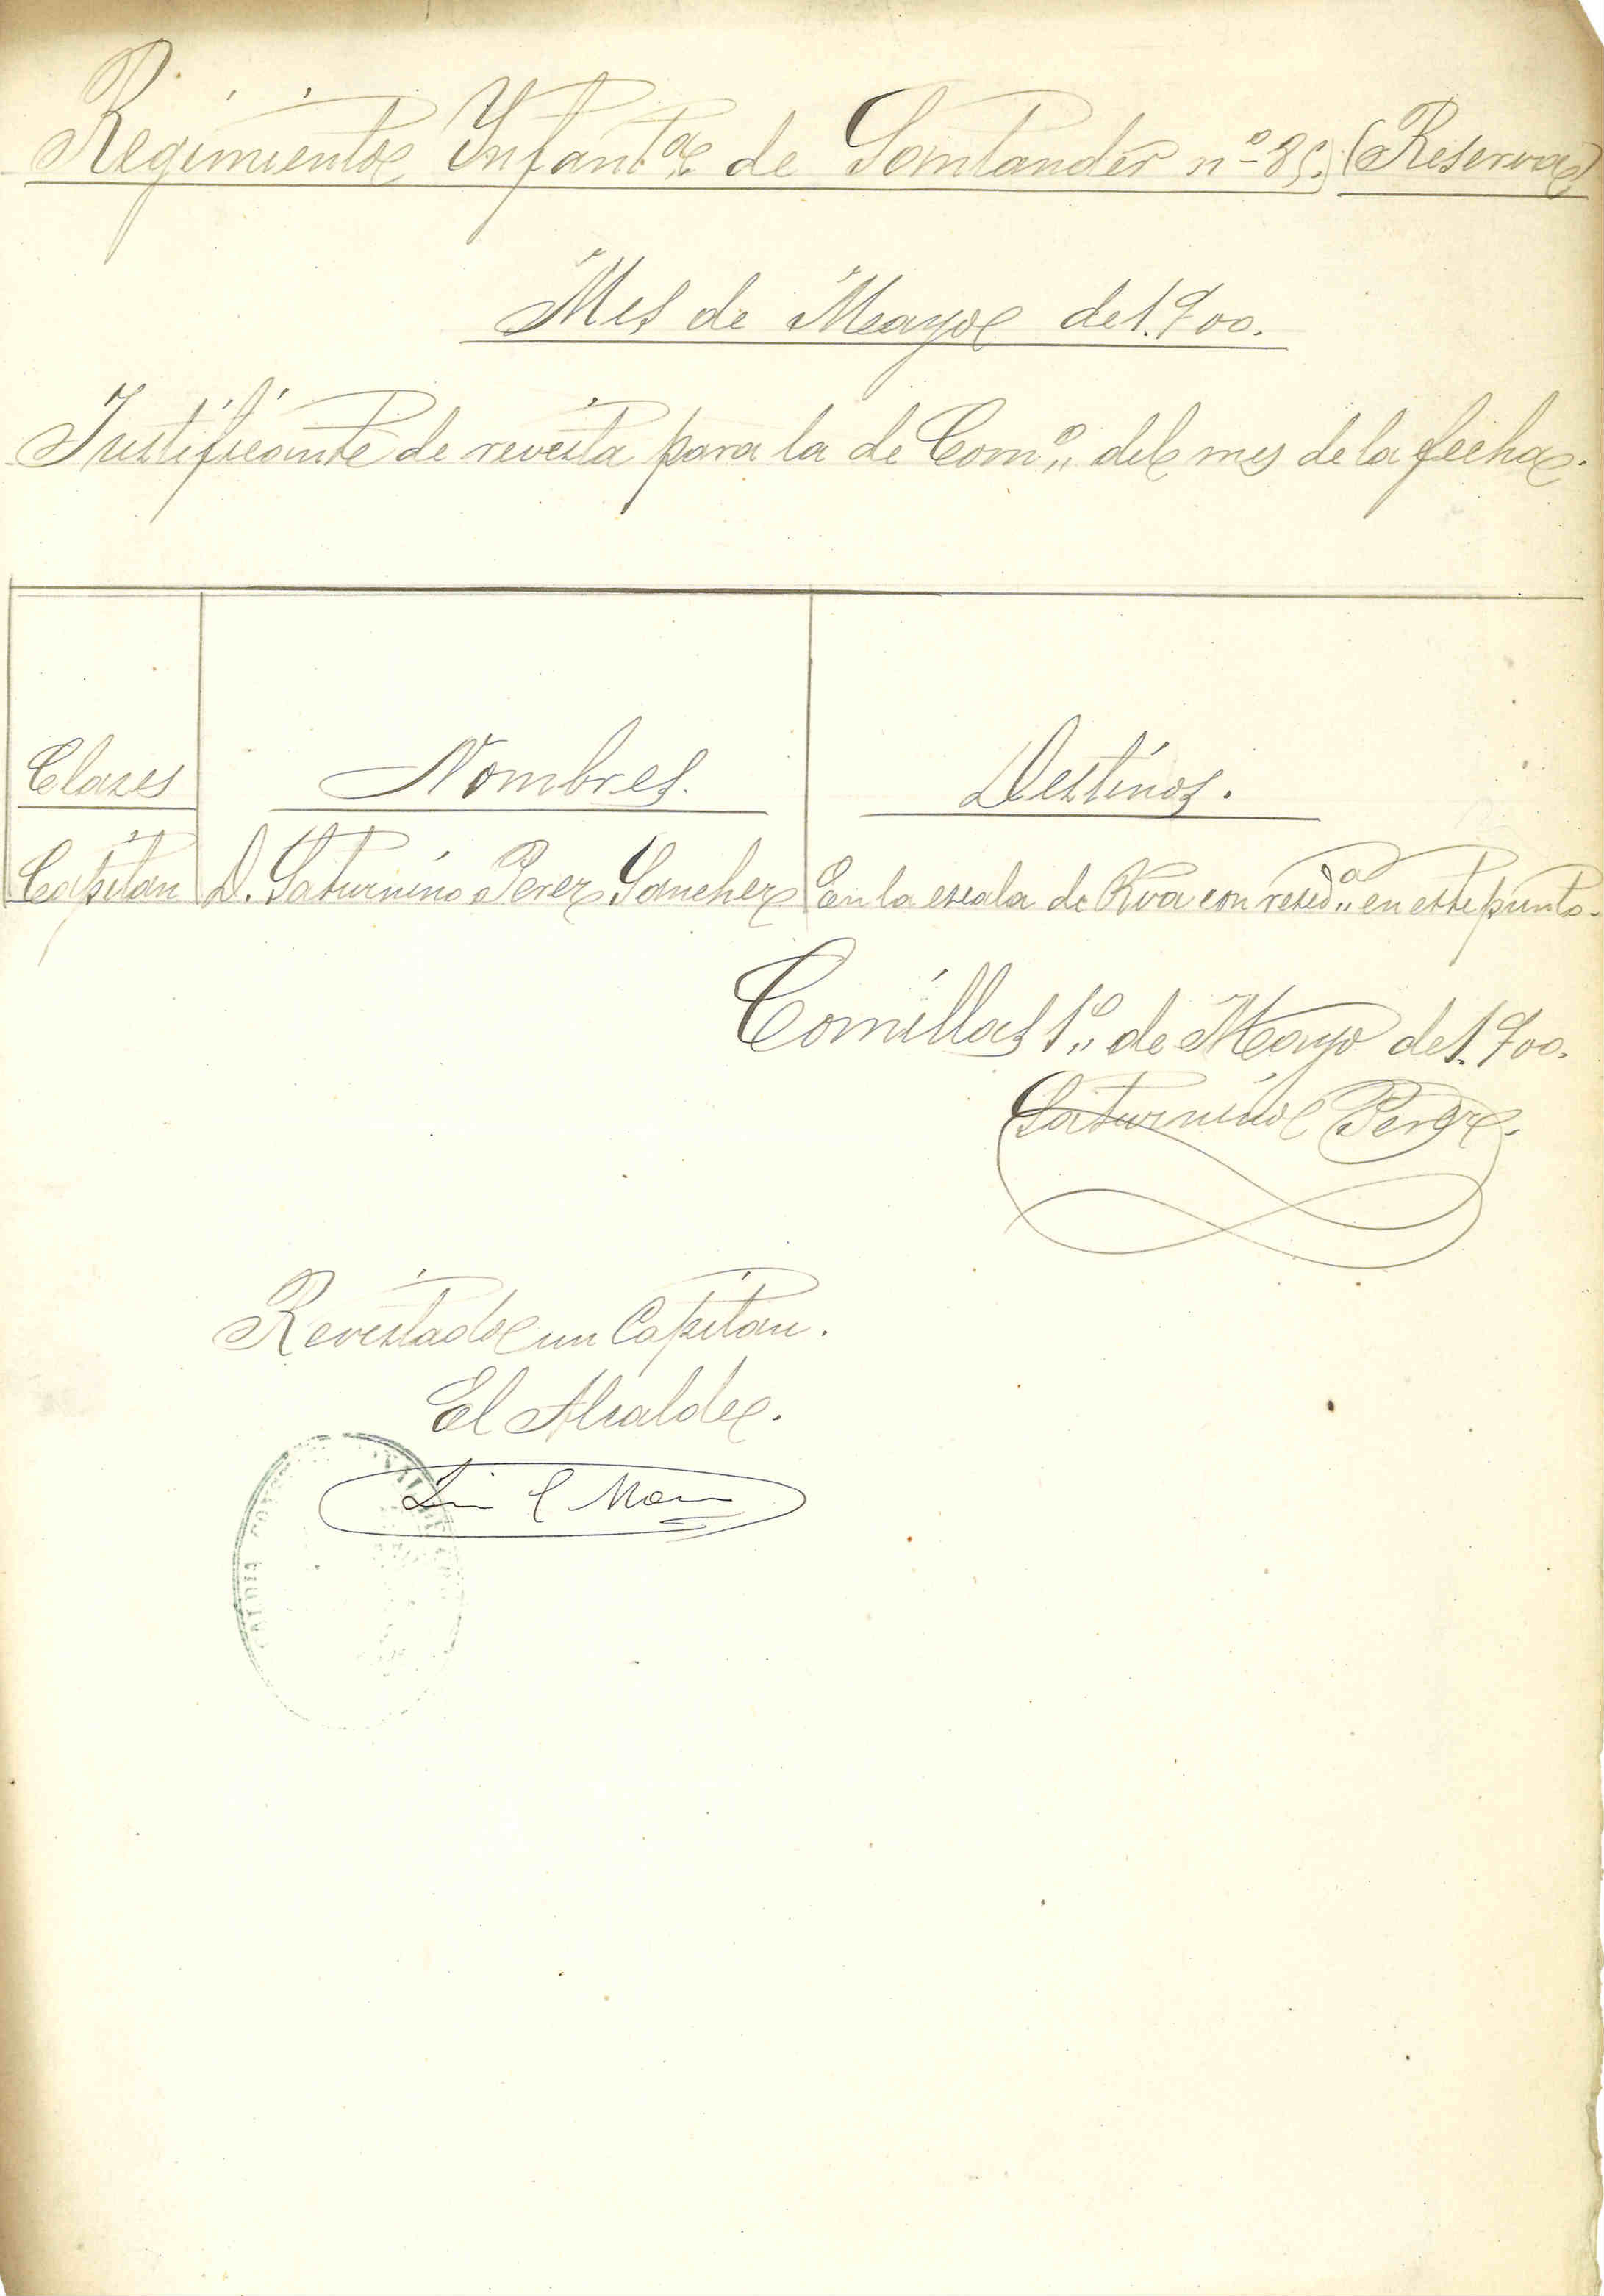 Regimiento Infantª de Santander nº 85. (Reserva)
Mes de Mayo de 1.900.
Justificante de revista para la de Comº del mes de la fecha.
Clases Nombres. Destinos.
Capitan D. Saturnino Perez Sanchez En la escala de Rva con residª en este punto.
Comillas 1º de Mayo de 1.900.
Saturnino Perez.
Revistado un Capitan.
El Alcalde.